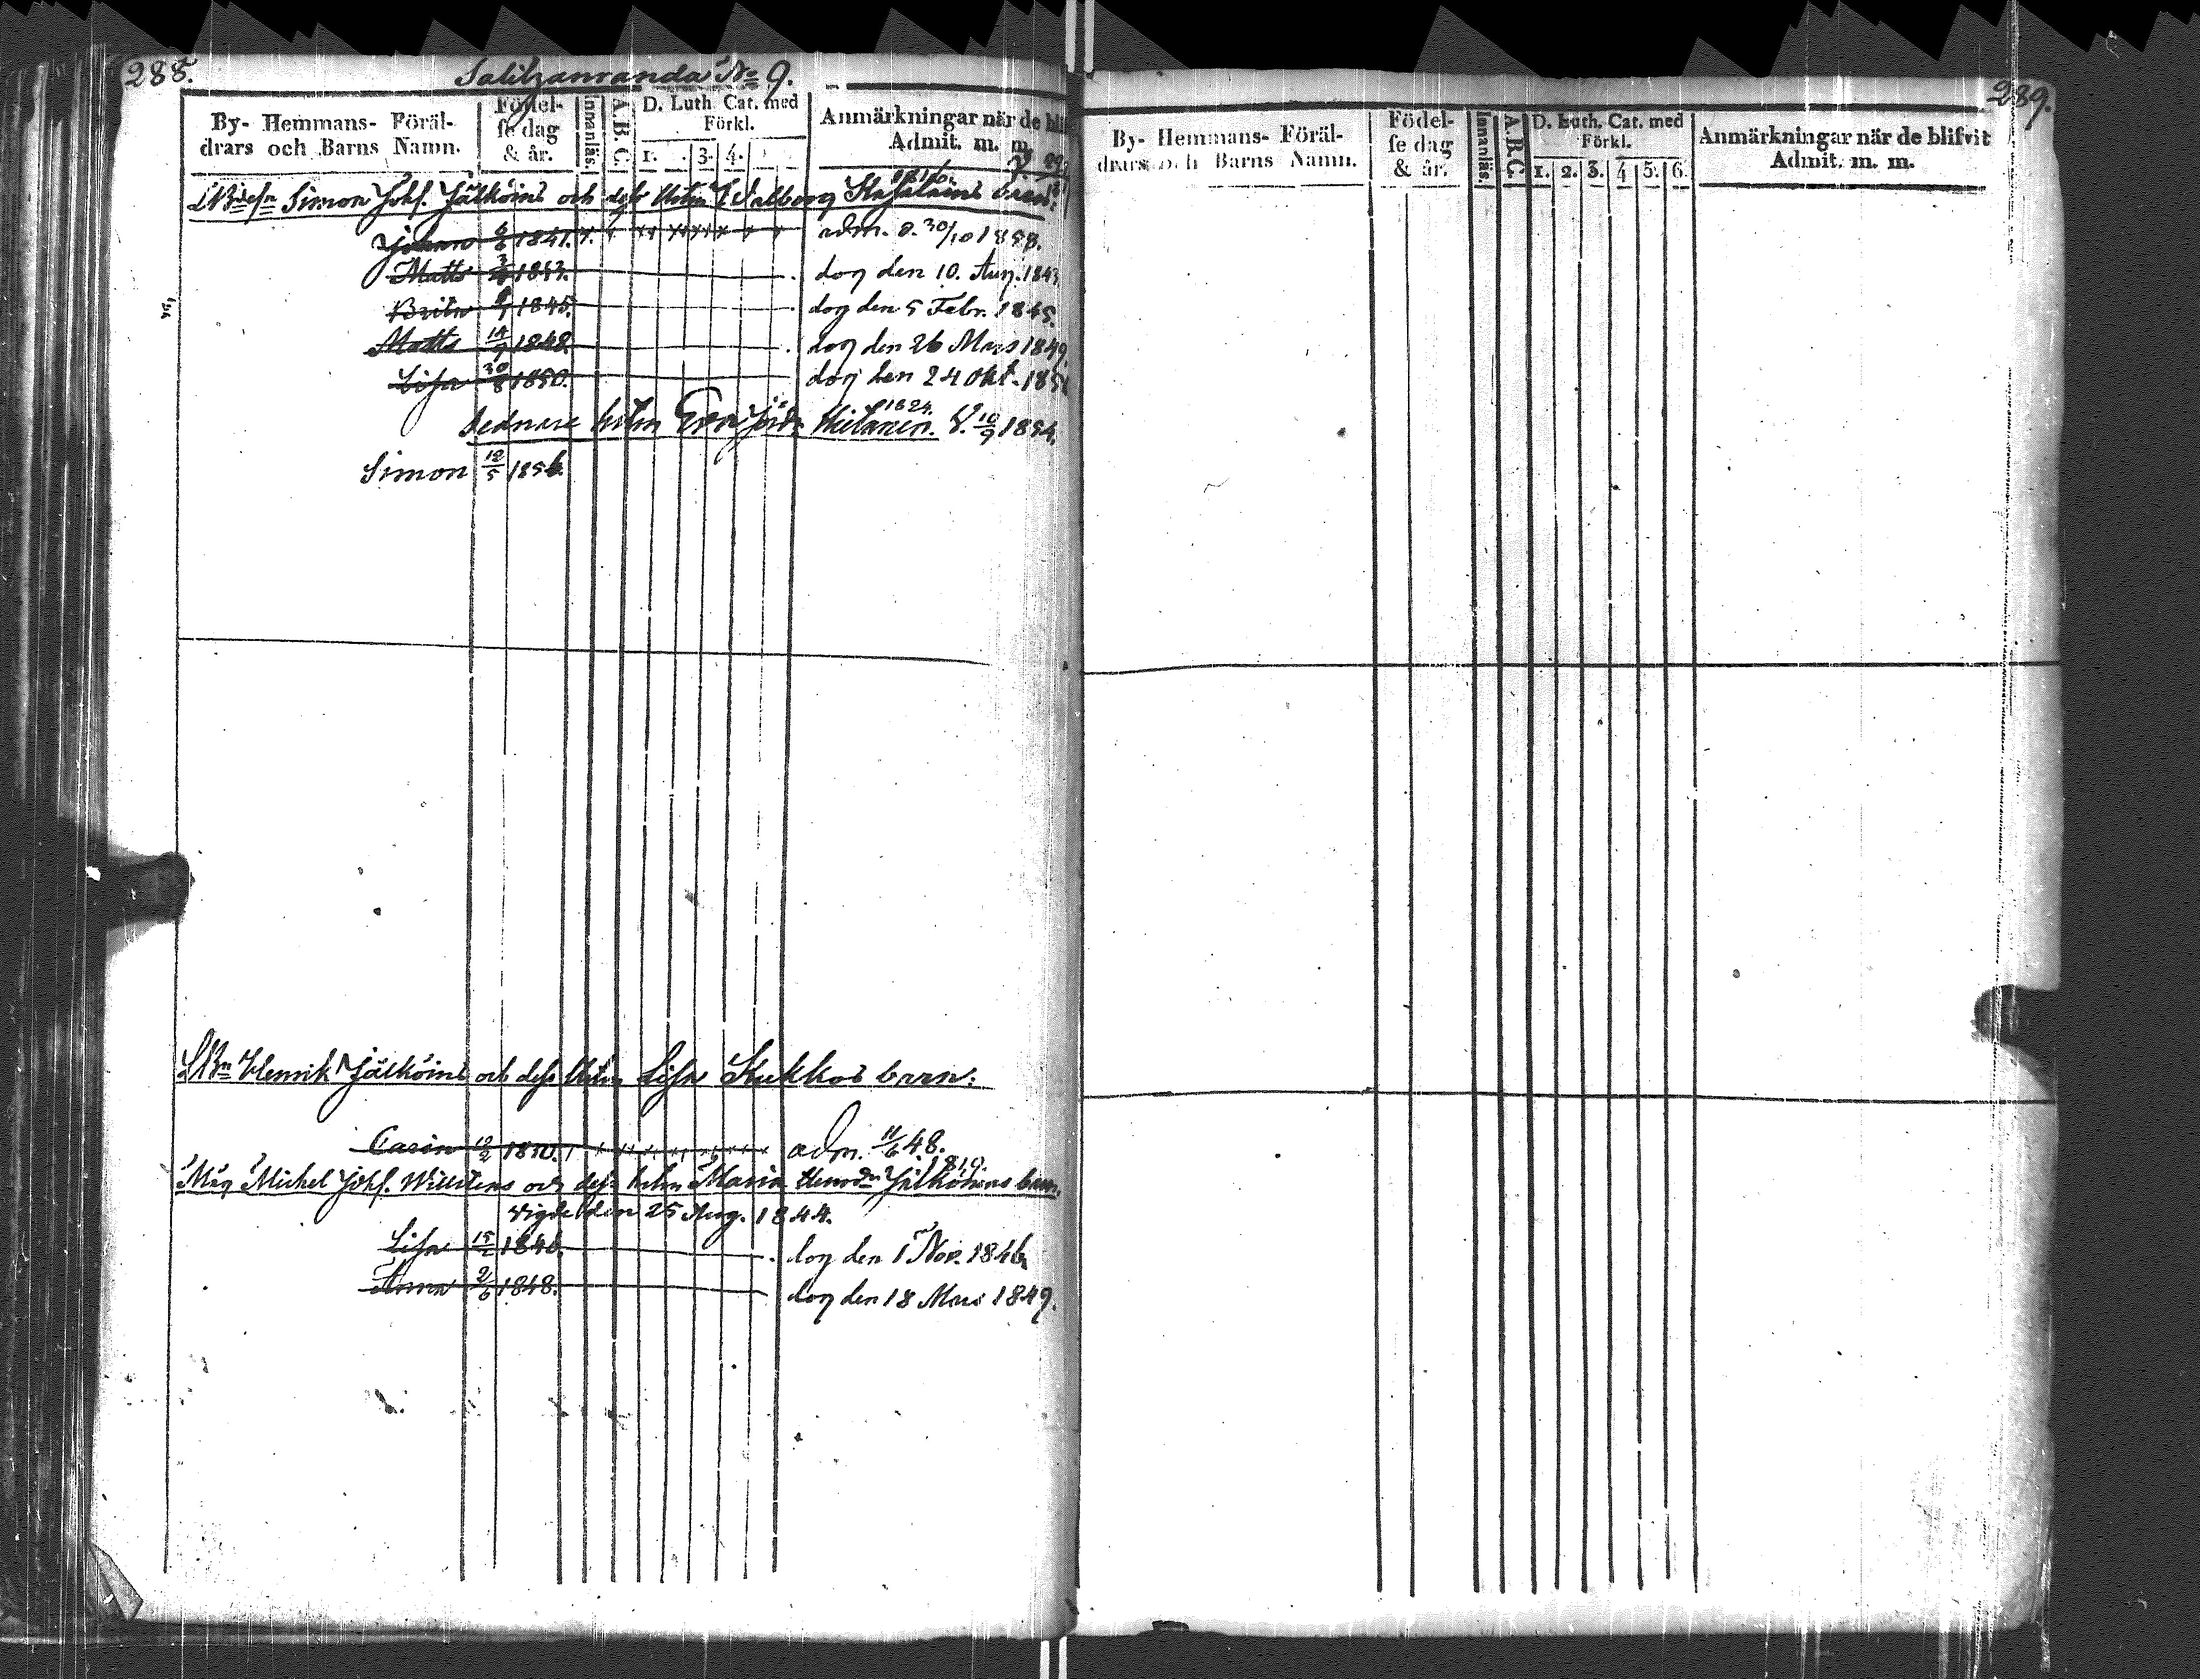 288.
Salitzanranda No 9.
By- Hemmans- Föräl-
drars och Barns Namn.
Födel-
se dag
& år.
Innanläs.
A.B.C
D. Luth. Cat. med
Förkl.
1. 3. 4.
Anmärkningar när de
Admit. m. m.
Simon Johs. Jälköins och dess Hstru Walborg barn
Johan 1841. adm. d. 30/10 1858.
Matts 1843. dog den 10. Aug. 1843
Brita 1845. dog den 5 Febr. 1845.
Matts 14/9 1848. dog den 26 Mars 1849
Lisa 30/8 1850. dog den 24 Okt. 185
sednare hstru Eva Hietanen. 1824. V. 10/9 1854.
Simon 12/5 1856.
Henrik Jälköins och dess Hstru Lisa Kukkos barn:
Carin 12/2 1830. adm. 11/6 48.
Måg Michel Johs. och dess hstru Maria Henrdr Jälköinens barn. 1819.
vigde den 25 Aug. 1844.
Lisa 1846. dog den 1 Nov. 1846
Anna 2/6 1848. dog den 18 Mars 1849.
289.
By- Hemmans- Föräl-
drars och Barns Namn.
Födel-
se dag
& år.
Innanläs.
A.B.C
D. Luth. Cat. med
Förkl.
1. 2. 3. 4 5. 6.
Anmärkningar när de blifvit
Admit. m. m.